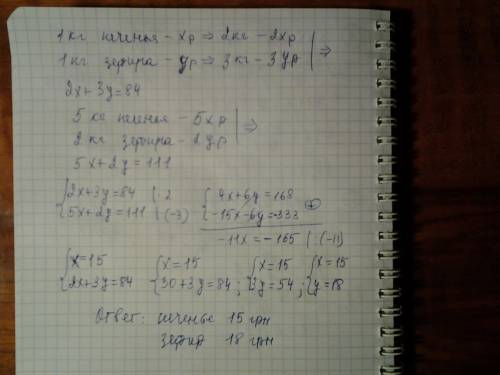 1 кг печенья - xр ⇒ 2кг - 2xр
1 кг зефира - yр ⇒ 3 кг - 3yр | ⇒
2x+3y=84
5 кг печенья - 5xр
2 кг зефира - 2yр | ⇒
5x+2y=111
{2x+3y=84 | ·2 {4x+6y=168
{5x+2y=111 | ·(-3) {-15x-6y=-333 (+)
-11x=-165 | :(-11)
{x=15 {x=15 {x=15 {x=15
{2x+3y=84 {30+3y=84; {3y=54; {y=18
Ответ: печенье 15 грн
зефир 18 грн